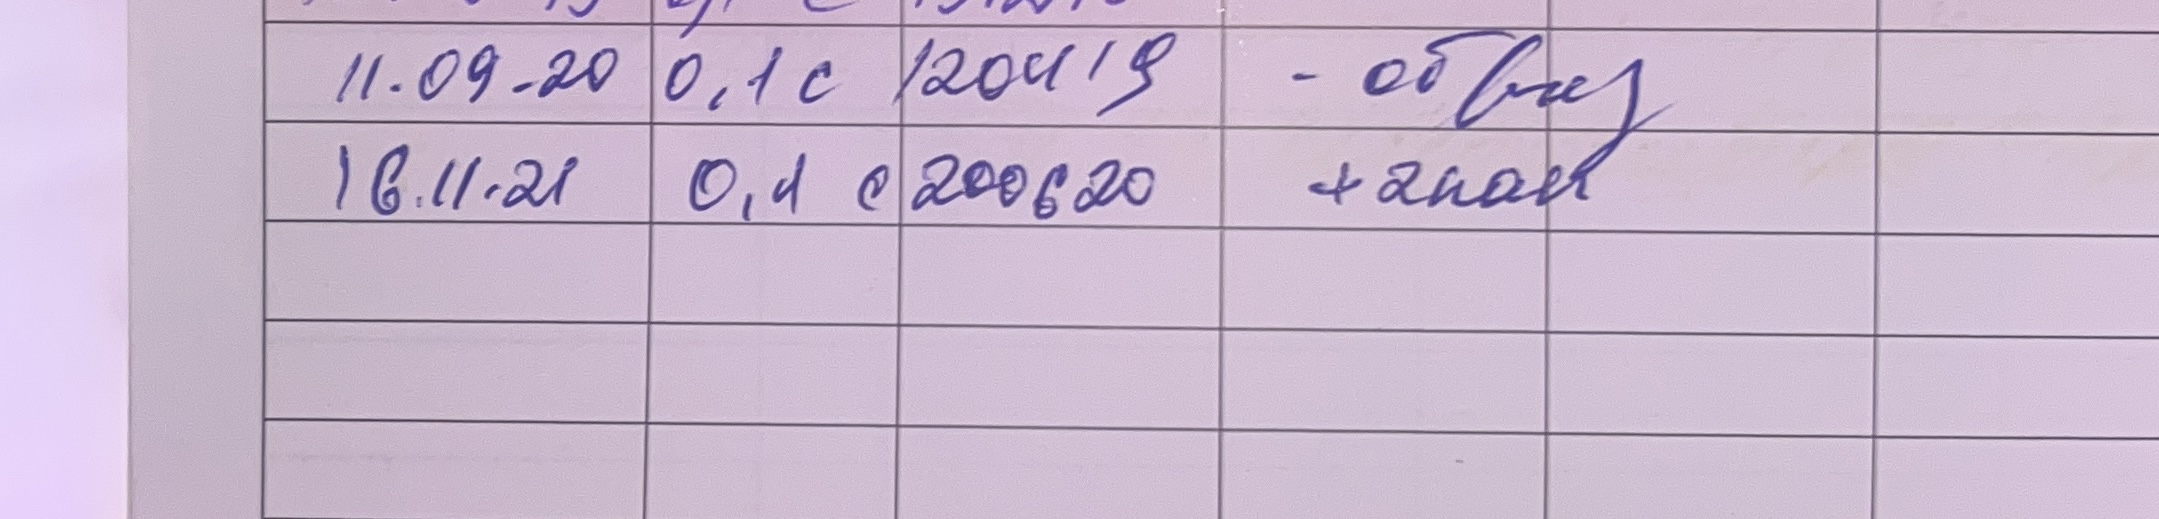 11.09.20 0,1 с 120419 - об
16.11.21 0,1 с 200620 +